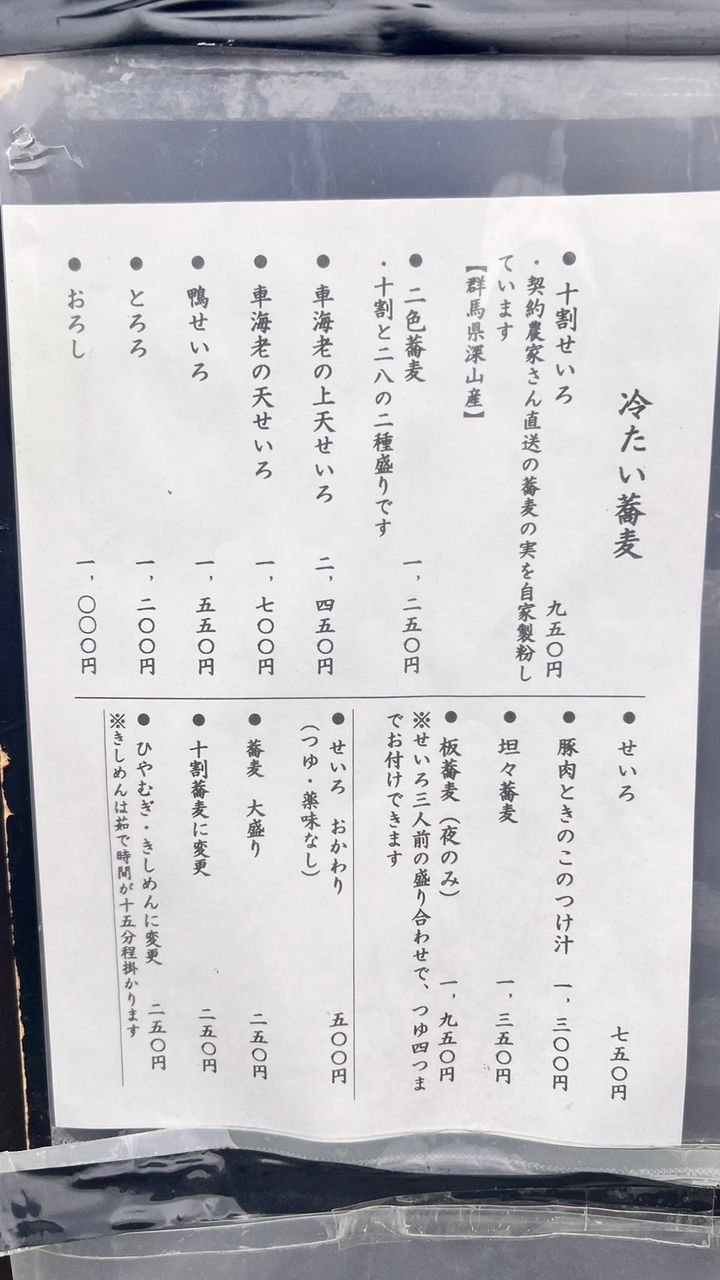 冷たい蕎麦
●十割せいろ 九五〇円
・契約農家さん直送の蕎麦の実を自家製粉し
ています
【群馬県深山産】
●二色蕎麦 一,二五〇円
・十割と二八の二種盛りです
●車海老の上天せいろ 二,四五〇円
●車海老の天せいろ 一,七〇〇円
●鴨せいろ 一,五五〇円
●とろろ 一,二〇〇円
●おろし 一,〇〇〇円
●せいろ 七五〇円
●豚肉ときのこのつけ汁 一,三〇〇円
●坦々蕎麦 一,三五〇円
●板蕎麦(夜のみ) 一,九五〇円
※せいろ三人前の盛り合わせで、つゆ四つま
でお付けできます
●せいろ おかわり 五〇〇円
(つゆ・薬味なし)
●蕎麦 大盛り 二五〇円
●十割蕎麦に変更 二五〇円
●ひやむぎ・きしめんに変更 二五〇円
※きしめんは茹で時間が十五分程掛かります